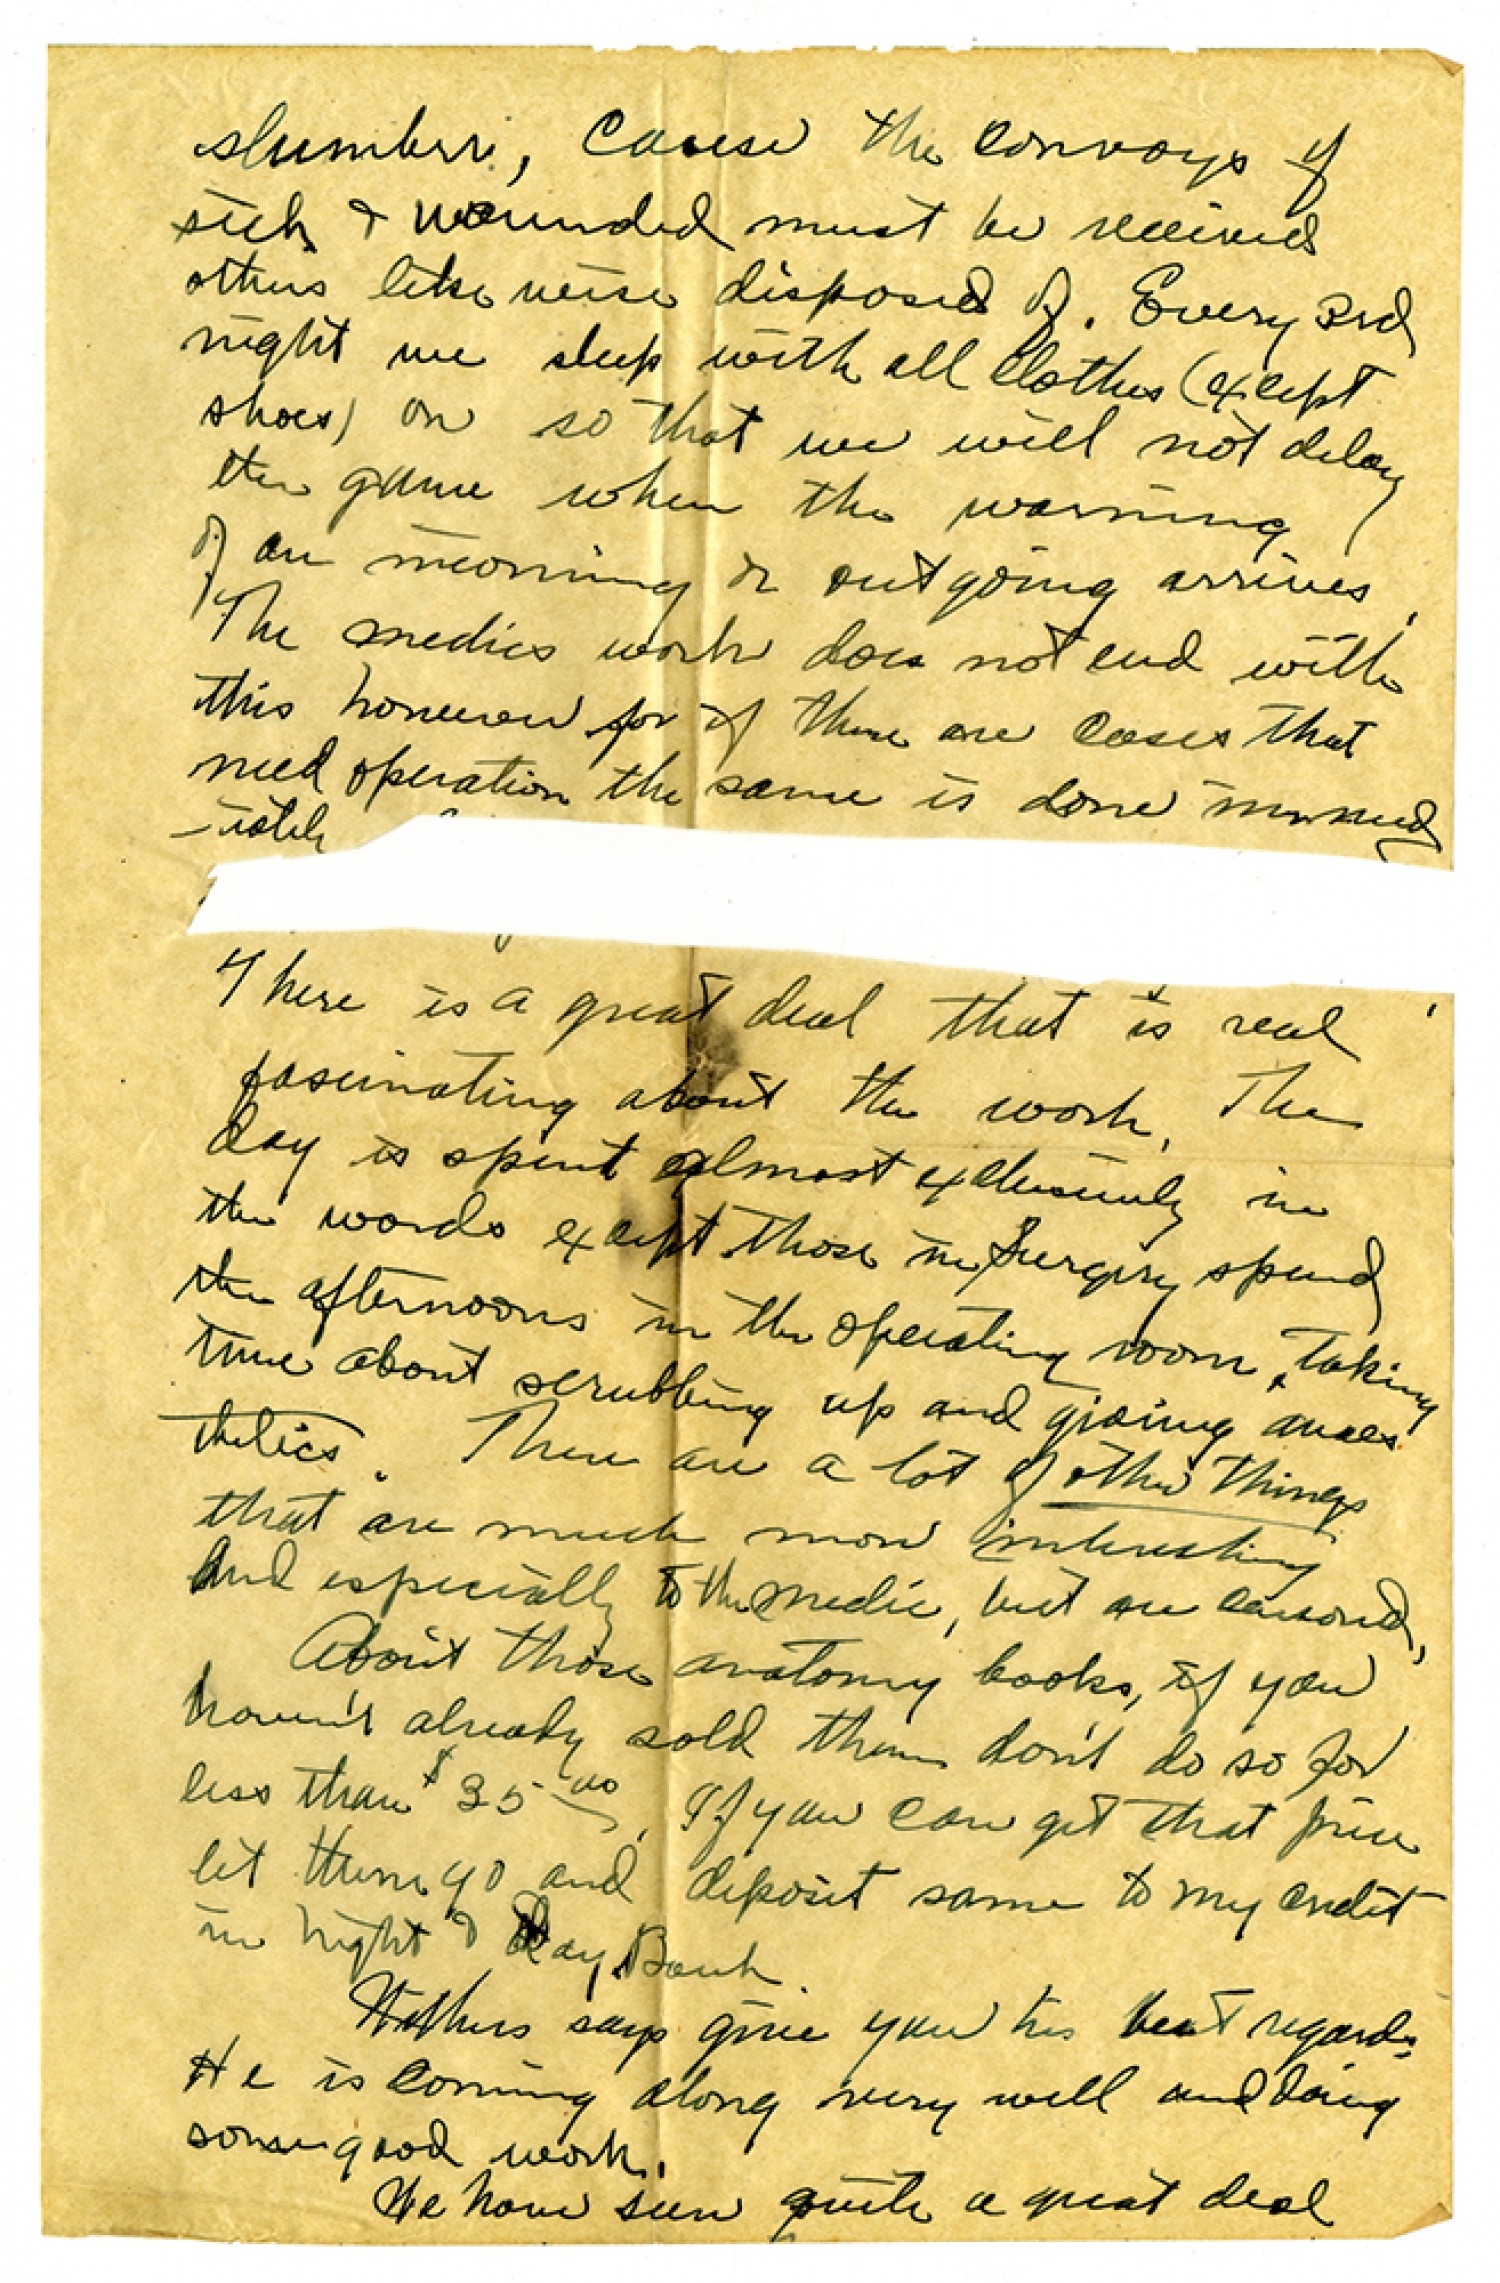 slumber, cause the convoys of
sick & wounded must be received
others likewise disposed of. Every 3rd
night we sleep with all clothes (except
shoes) on so that we will not delay
the game when the warning
of an incoming or outgoing arrives.
The medics work does not end with
this however for if there are cases that
need operation the same is done immed
-iately
There is a great deal that is real
fascinating about the work. The
day is spent almost exclusively in
the wards except those in Surgery spend
the afternoons in the operating room, taking
time about scrubbing up and giving anaes
thetics. There are a lot of other things
that are much more interesting
and especially to the medic, but are censored,
About those anatomy books, if you
haven't already sold them don't do so for
less than $35 00. If you can get that price
let them go and deposit same to my credit
in Night & Day Bank.
says give you his best regards.
He is coming along very well and doing
some good work.
We have seen quite a great deal